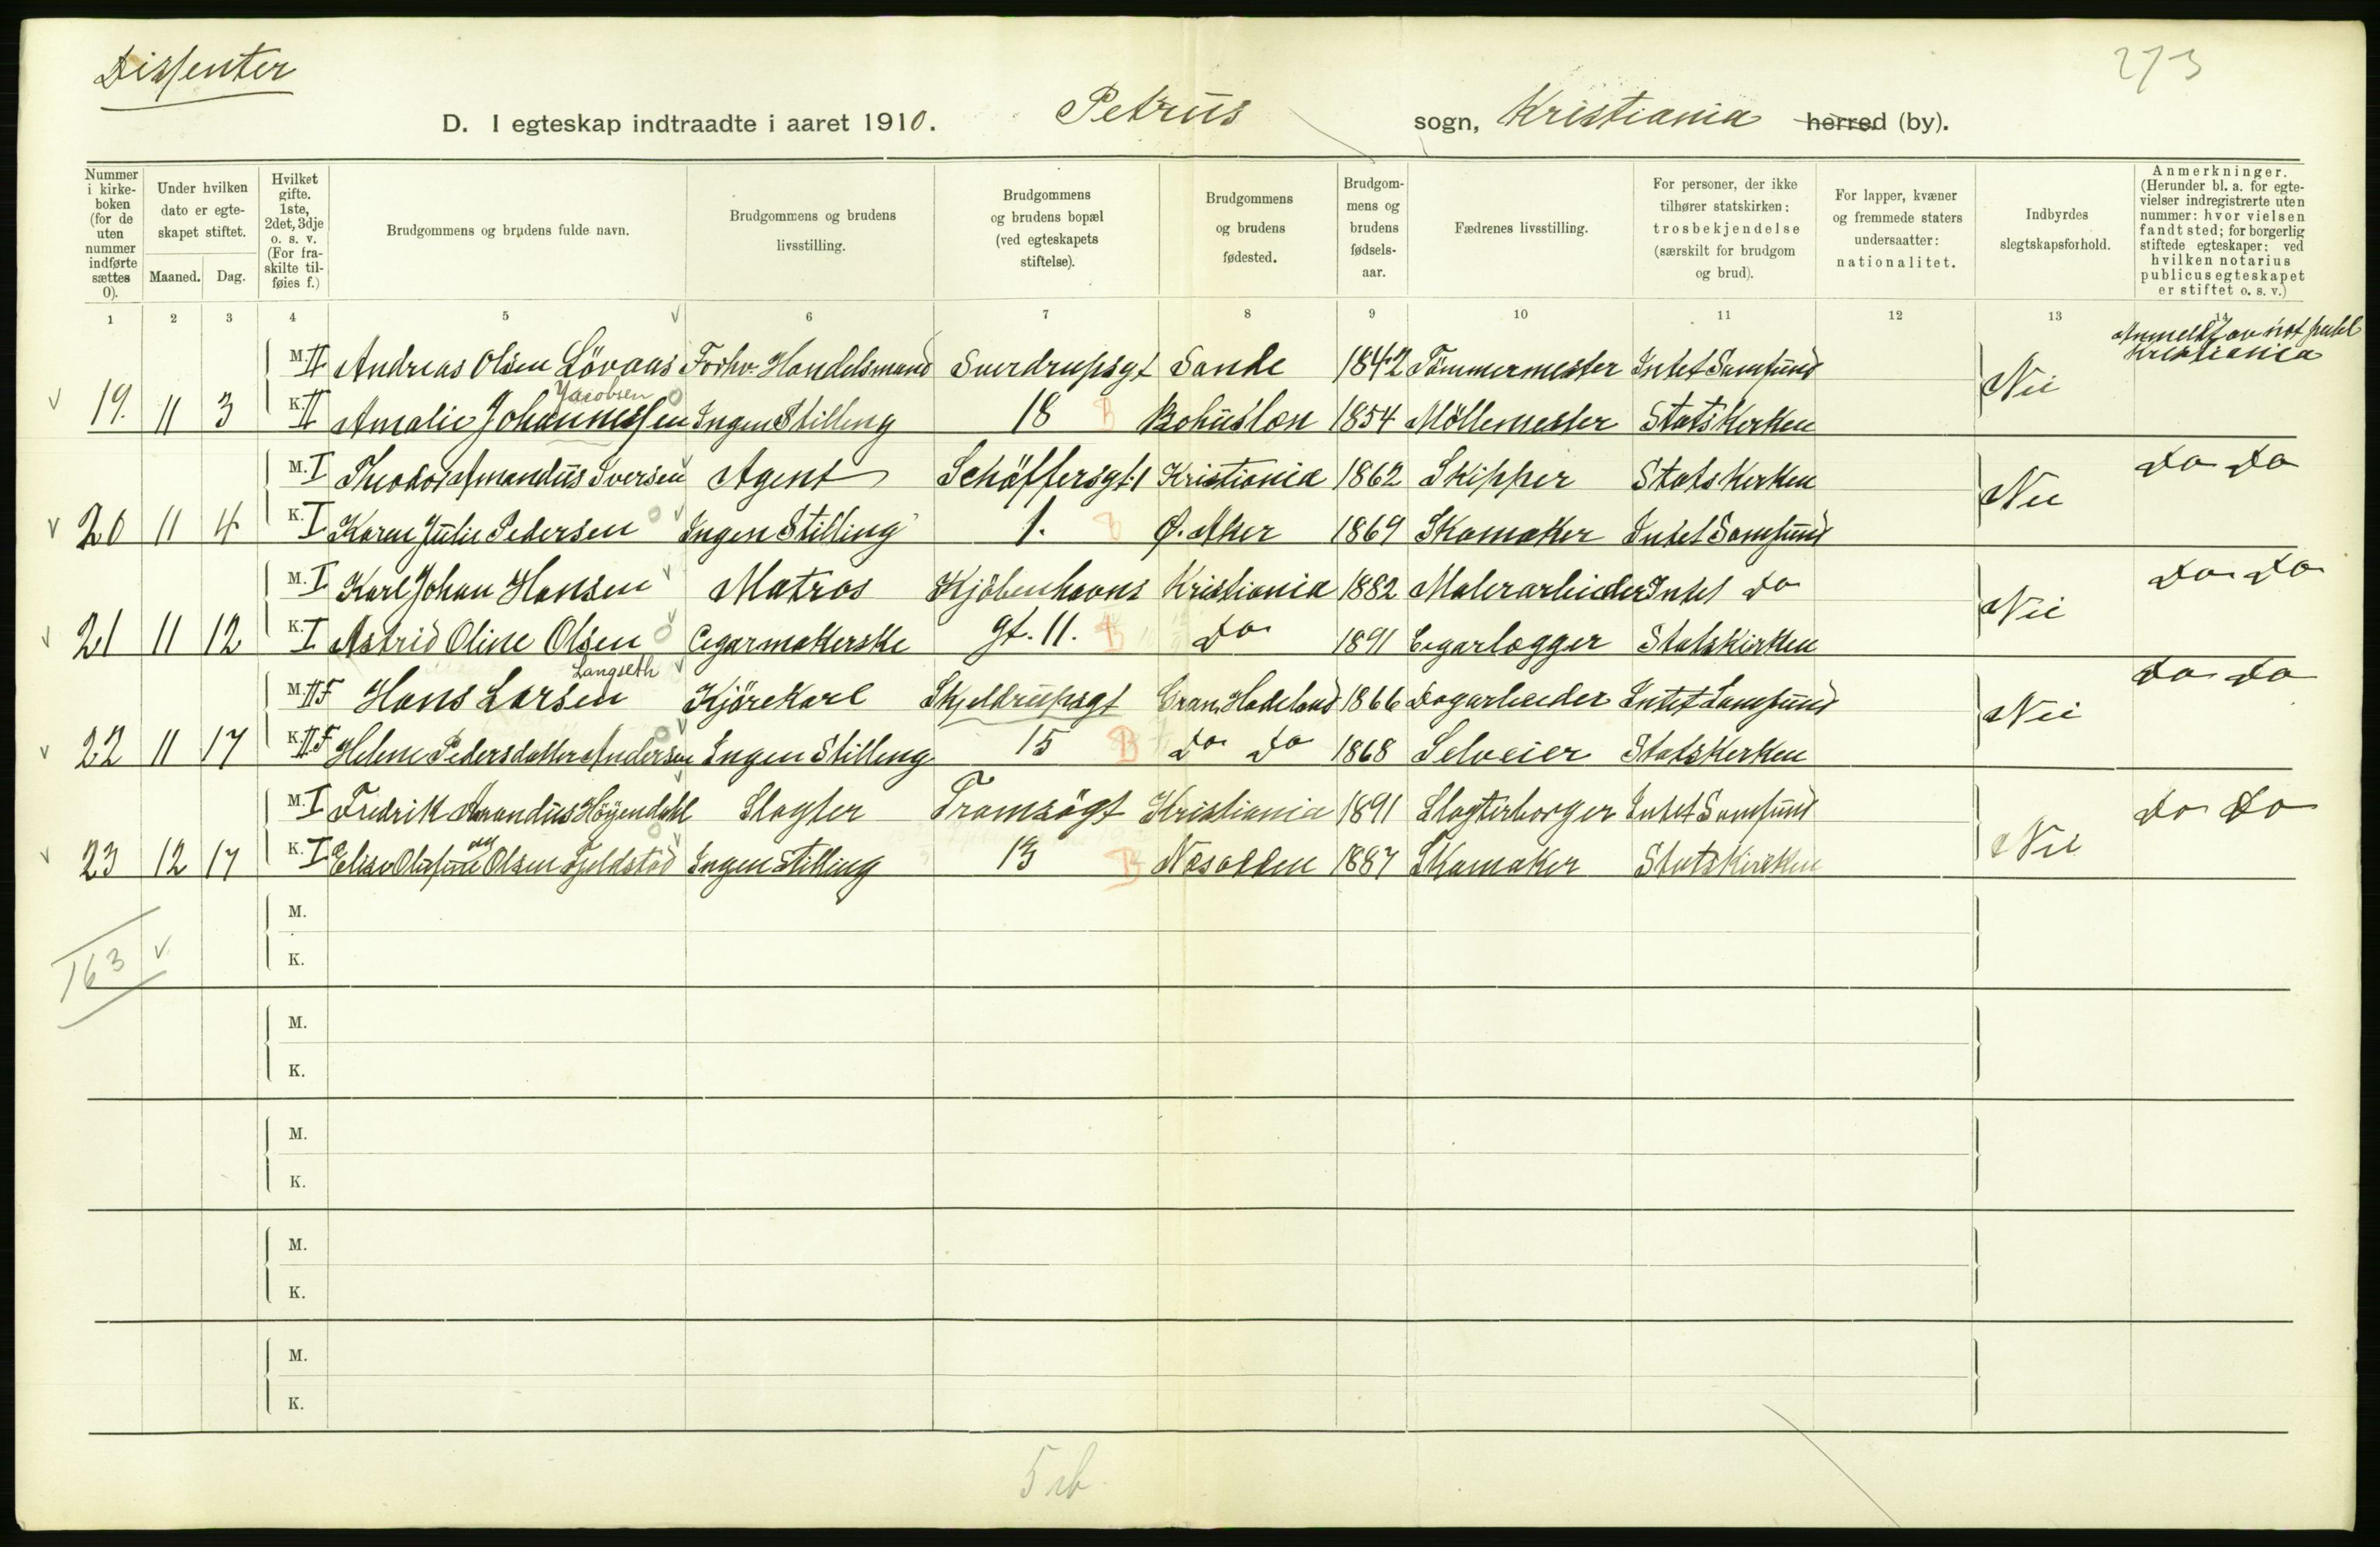 Dissenter
273
D. I egteskap indtraadte i aaret 1910. Petrus sogn, Kristiania herred (by).
Nummer i kirke-boken (for de uten nummer indførte sættes 0).
Under hvilken dato er egte-skapet stiftet.
Maaned. Dag.
Hvilket gifte. 1ste, 2det, 3dje o. s. v. (For fra-skilte til-føies f.)
Brudgommens og brudens fulde navn.
Brudgommens og brudens livsstilling.
Brudgommens og brudens bopæl (ved egteskapets stiftelse).
Brudgommens og brudens fødested.
Brudgom-mens og brudens fødsels-aar.
Fædrenes livsstilling.
For personer, der ikke tilhører statskirken: trosbekjendelse (særskilt for brudgom og brud).
For lapper, kvæner og fremmede staters undersaatter: nationalitet.
Indbyrdes slegtskapsforhold.
Anmerkninger. (Herunder bl. a. for egte-vielser indregistrerte uten nummer: hvor vielsen fandt sted; for borgerlig stiftede egteskaper: ved hvilken notarius publicus egteskapet er stiftet o. s. v.)
1 2 3 4 5 6 7 8 9 10 11 12 13 14
M. II Andreas Olsen Lövaas Forhv. Handelsmand Sverdrupsgt Sande 1842 Tömmermester Intet Samfund Anmeldt av not publ Kristiania
Jacobsen
19. 11 3 K. II Amalie Johannessen Ingen Stilling 18 B Bohuslæn 1854 Möllemester Statskirken Nei
M. I Theodor Amandus Iversen Agent Schöffersgt. 1 Kristiania 1862 Skipper Statskirken Do Do
20 11 4 K. I Karen Julie Pedersen Ingen Stilling 1. B Ø. Aker 1869 Skomaker Intet Samfund Nei
M. I Karl Johan Hansen Matros Kjöbenhavns Kristiania 1882 Malerarbeider Intet Do Do Do
21 11 12 K. I Astrid Oline Olsen Cigarmakerske gt. 11. B Do 1891 Cigarlægger Statskirken Nei
Langseth
M. II F Hans Larsen Kjörekarl Skjeldrupsgt Gran, Hadeland 1866 Dagarbeider Intet Samfund Do Do
22 11 17 K. II F Helene Pedersdatter Andersen Ingen Stilling 15 B Do Do 1868 Selveier Statskirken Nei
M. I Fredrik Amandus Höyendahl Slagter Tromsögt Kristiania 1891 Slagterborger Intet Samfund Do Do
23 12 17 K. I Elise Olufine Olsen Fjeldstad Ingen Stilling 13 B Nesodden 1887 Skomaker Statskirken Nei
M.
K.
163
M.
K.
M.
K.
M.
K.
M.
K.
5 b